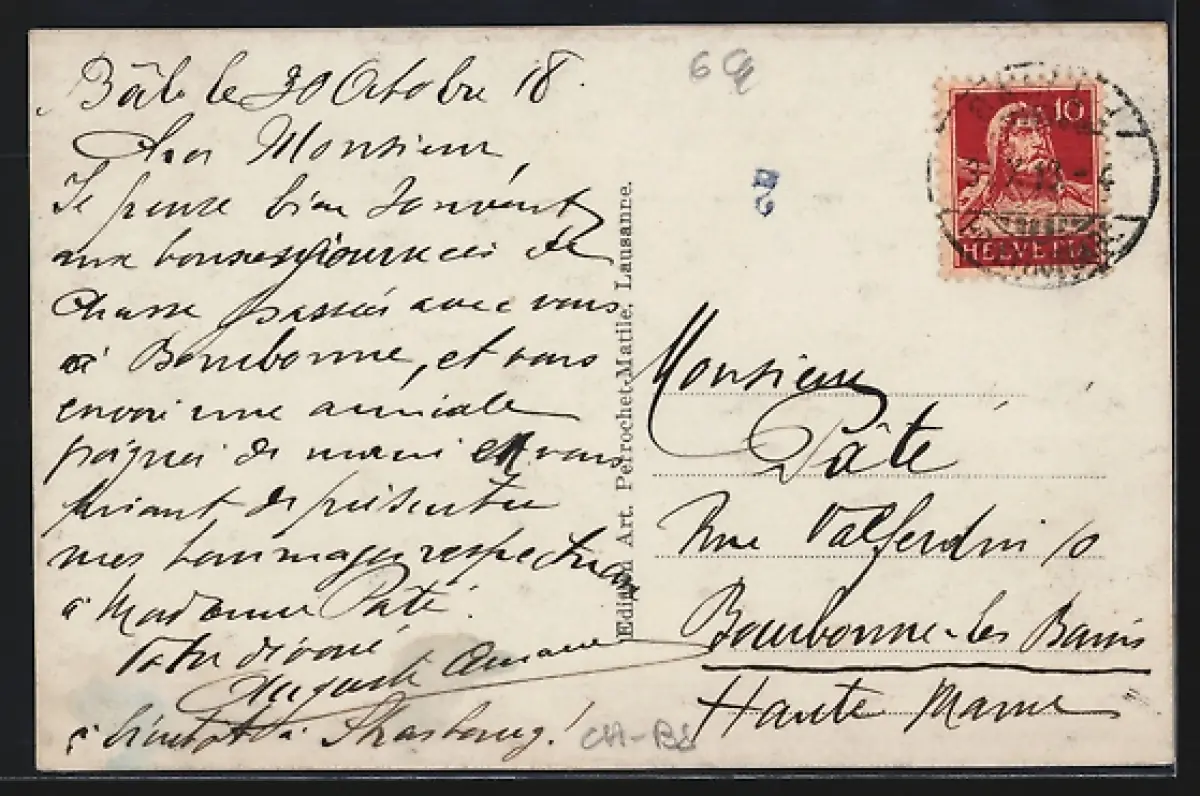 Bâle le 30 Octobre 18.
Cher Monsieur,
Je pense bien souvent
aux bonnes journées de
Chasse passées avec vous
à Bourbonne, et vous
envoi une amicale
poignée de main en vous
priant de présenter
mes hommages respectueux
à Madame Pâté.
Votre dévoué
Auguste
à bientôt à Strasbourg!
CH-BS
Edition Art. Perrochet-Matile, Lausanne.
6
10
HELVETIA
Monsieur
Pâté
Rue Valferdin 10
Bourbonne-les Bains
Haute Marne